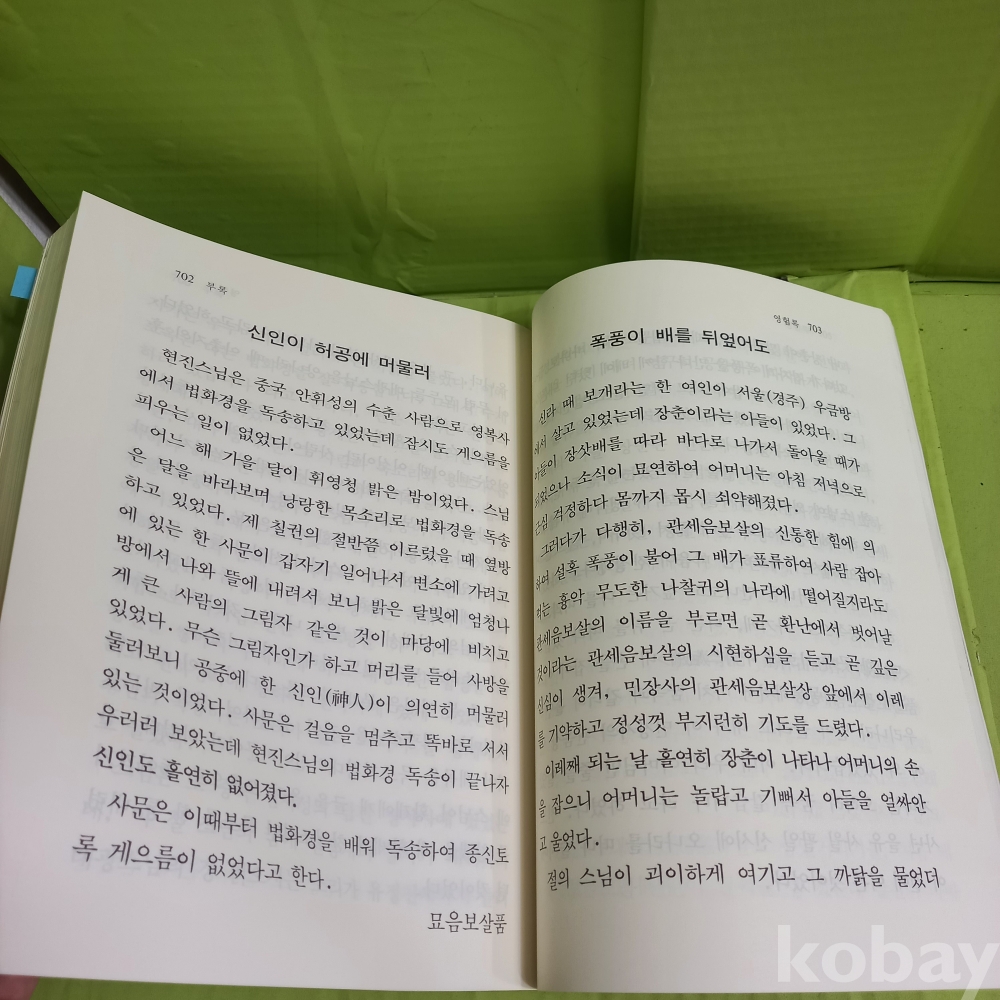 702 부록
신인이 허공에 머물러
현진스님은 중국 안휘성의 수춘 사람으로 영복사
에서 법화경을 독송하고 있었는데 잠시도 게으름을
피우는 일이 없었다.
어느 해 가을 달이 휘영청 밝은 밤이었다. 스님
은 달을 바라보며 낭랑한 목소리로 법화경을 독송
하고 있었다. 제 칠권의 절반쯤 이르렀을 때 옆방
에 있는 한 사문이 갑자기 일어나서 변소에 가려고
방에서 나와 뜰에 내려서 보니 밝은 달빛에 엄청나
게 큰 사람의 그림자 같은 것이 마당에 비치고
있었다. 무슨 그림자인가 하고 머리를 들어 사방을
둘러보니 공중에 한 신인(神人)이 의연히 머물러
있는 것이었다. 사문은 걸음을 멈추고 똑바로 서서
우러러 보았는데 현진스님의 법화경 독송이 끝나자
신인도 홀연히 없어졌다.
사문은 이때부터 법화경을 배워 독송하여 종신토
록 게으름이 없었다고 한다.
묘음보살품
영험록 703
폭풍이 배를 뒤엎어도
신라 때 보개라는 한 여인이 서울(경주) 우금방
에서 살고 있었는데 장춘이라는 아들이 있었다. 그
아들이 장삿배를 따라 바다로 나가서 돌아올 때가
되었으나 소식이 묘연하여 어머니는 아침 저녁으로
근심 걱정하다 몸까지 몹시 쇠약해졌다.
그러다가 다행히, 관세음보살의 신통한 힘에 의
하여 설혹 폭풍이 불어 그 배가 표류하여 사람 잡아
먹는 흉악 무도한 나찰귀의 나라에 떨어질지라도
관세음보살의 이름을 부르면 곧 환난에서 벗어날
것이라는 관세음보살의 시현하심을 듣고 곧 깊은
신심이 생겨, 민장사의 관세음보살상 앞에서 이레
를 기약하고 정성껏 부지런히 기도를 드렸다.
이레째 되는 날 홀연히 장춘이 나타나 어머니의 손
을 잡으니 어머니는 놀랍고 기뻐서 아들을 얼싸안
고 울었다.
절의 스님이 괴이하게 여기고 그 까닭을 물었더
kobay